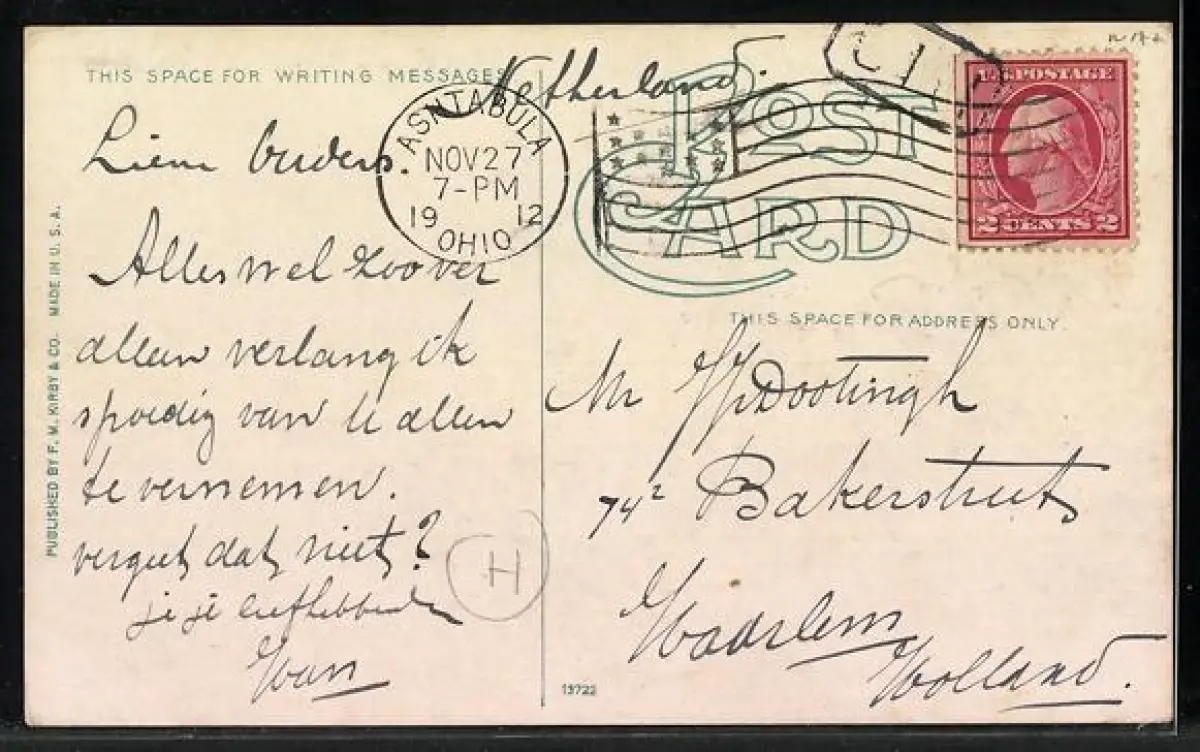 THIS SPACE FOR WRITING MESSAGES
Netherland.
POST
CARD
ASHTABULA
NOV 27
7-PM
1912
OHIO
U.S. POSTAGE
2 CENTS 2
Lieve Ouders.
Alles wel zoo ver
alleen verlang ik
spoedig van U allen
te vernemen.
vergeet dat niet?
liefhebbende
PUBLISHED BY F. M. KIRBY & CO. MADE IN U. S. A.
H
THIS SPACE FOR ADDRESS ONLY.
Mr Dootingh
74² Bakerstreet
Haarlem
Holland.
13722